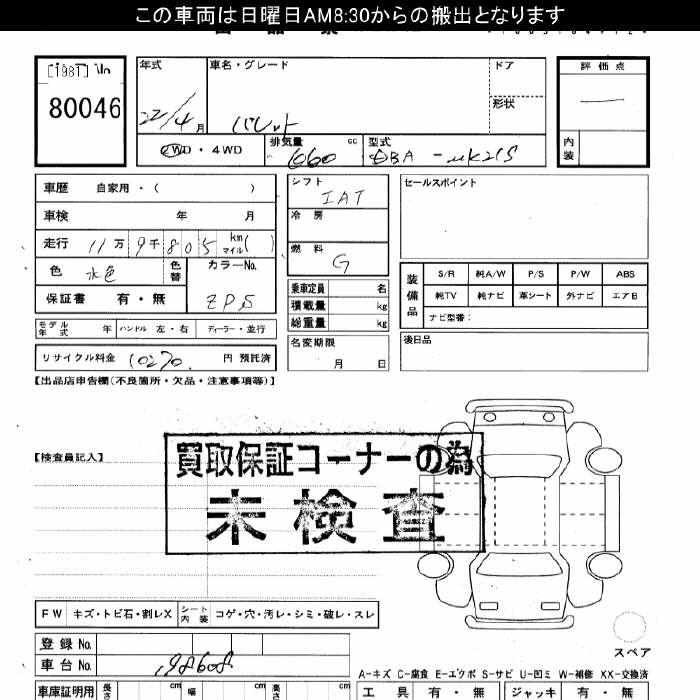 この車両は日曜日AM8:30からの搬出となります
[1987] No
80046
年式
22/4月
車名・グレード
パレット
ドア
形状
評価点
内装
2WD・4WD
排気量
660 cc
型式
DBA-MK21S
車歴 自家用・( )
車検 年 月
走行 11万9千805 km マイル( )
色 水色
色替
カラーNo.
ZP5
保証書 有・無
モデル年式 年
ハンドル 左・右
ディーラー・並行
リサイクル料金 10270 円 預託済
シフト
IAT
冷房
燃料
G
乗車定員 名
積載量 kg
総重量 kg
名変期限
月 日
セールスポイント
装備品
S/R 純A/W P/S P/W ABS
純TV 純ナビ 革シート 外ナビ エアB
ナビ型番:
後日品
【出品店申告欄(不良箇所・欠品・注意事項等)】
【検査員記入】
買取保証コーナーの為
未検査
FW キズ・トビ石・割レX
シート内装 コゲ・穴・汚レ・シミ・破レ・スレ
登録No.
車台No.
198608
スペア
A-キズ C-腐食 E-エクボ S-サビ U-凹ミ W-補修 XX-交換済
車庫証明用 長さ cm 幅 cm 高さ cm
工具 有・無 ジャッキ 有・無